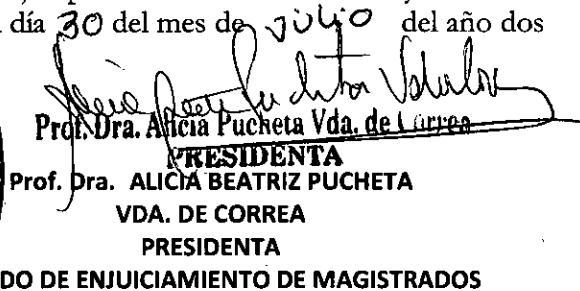 día 30 del mes de Julio del año dos
Prof. Dra. Alicia Pucheta Vda. de Correa
PRESIDENTA
Prof. Dra. ALICIA BEATRIZ PUCHETA
VDA. DE CORREA
PRESIDENTA
DO DE ENJUICIAMIENTO DE MAGISTRADOS